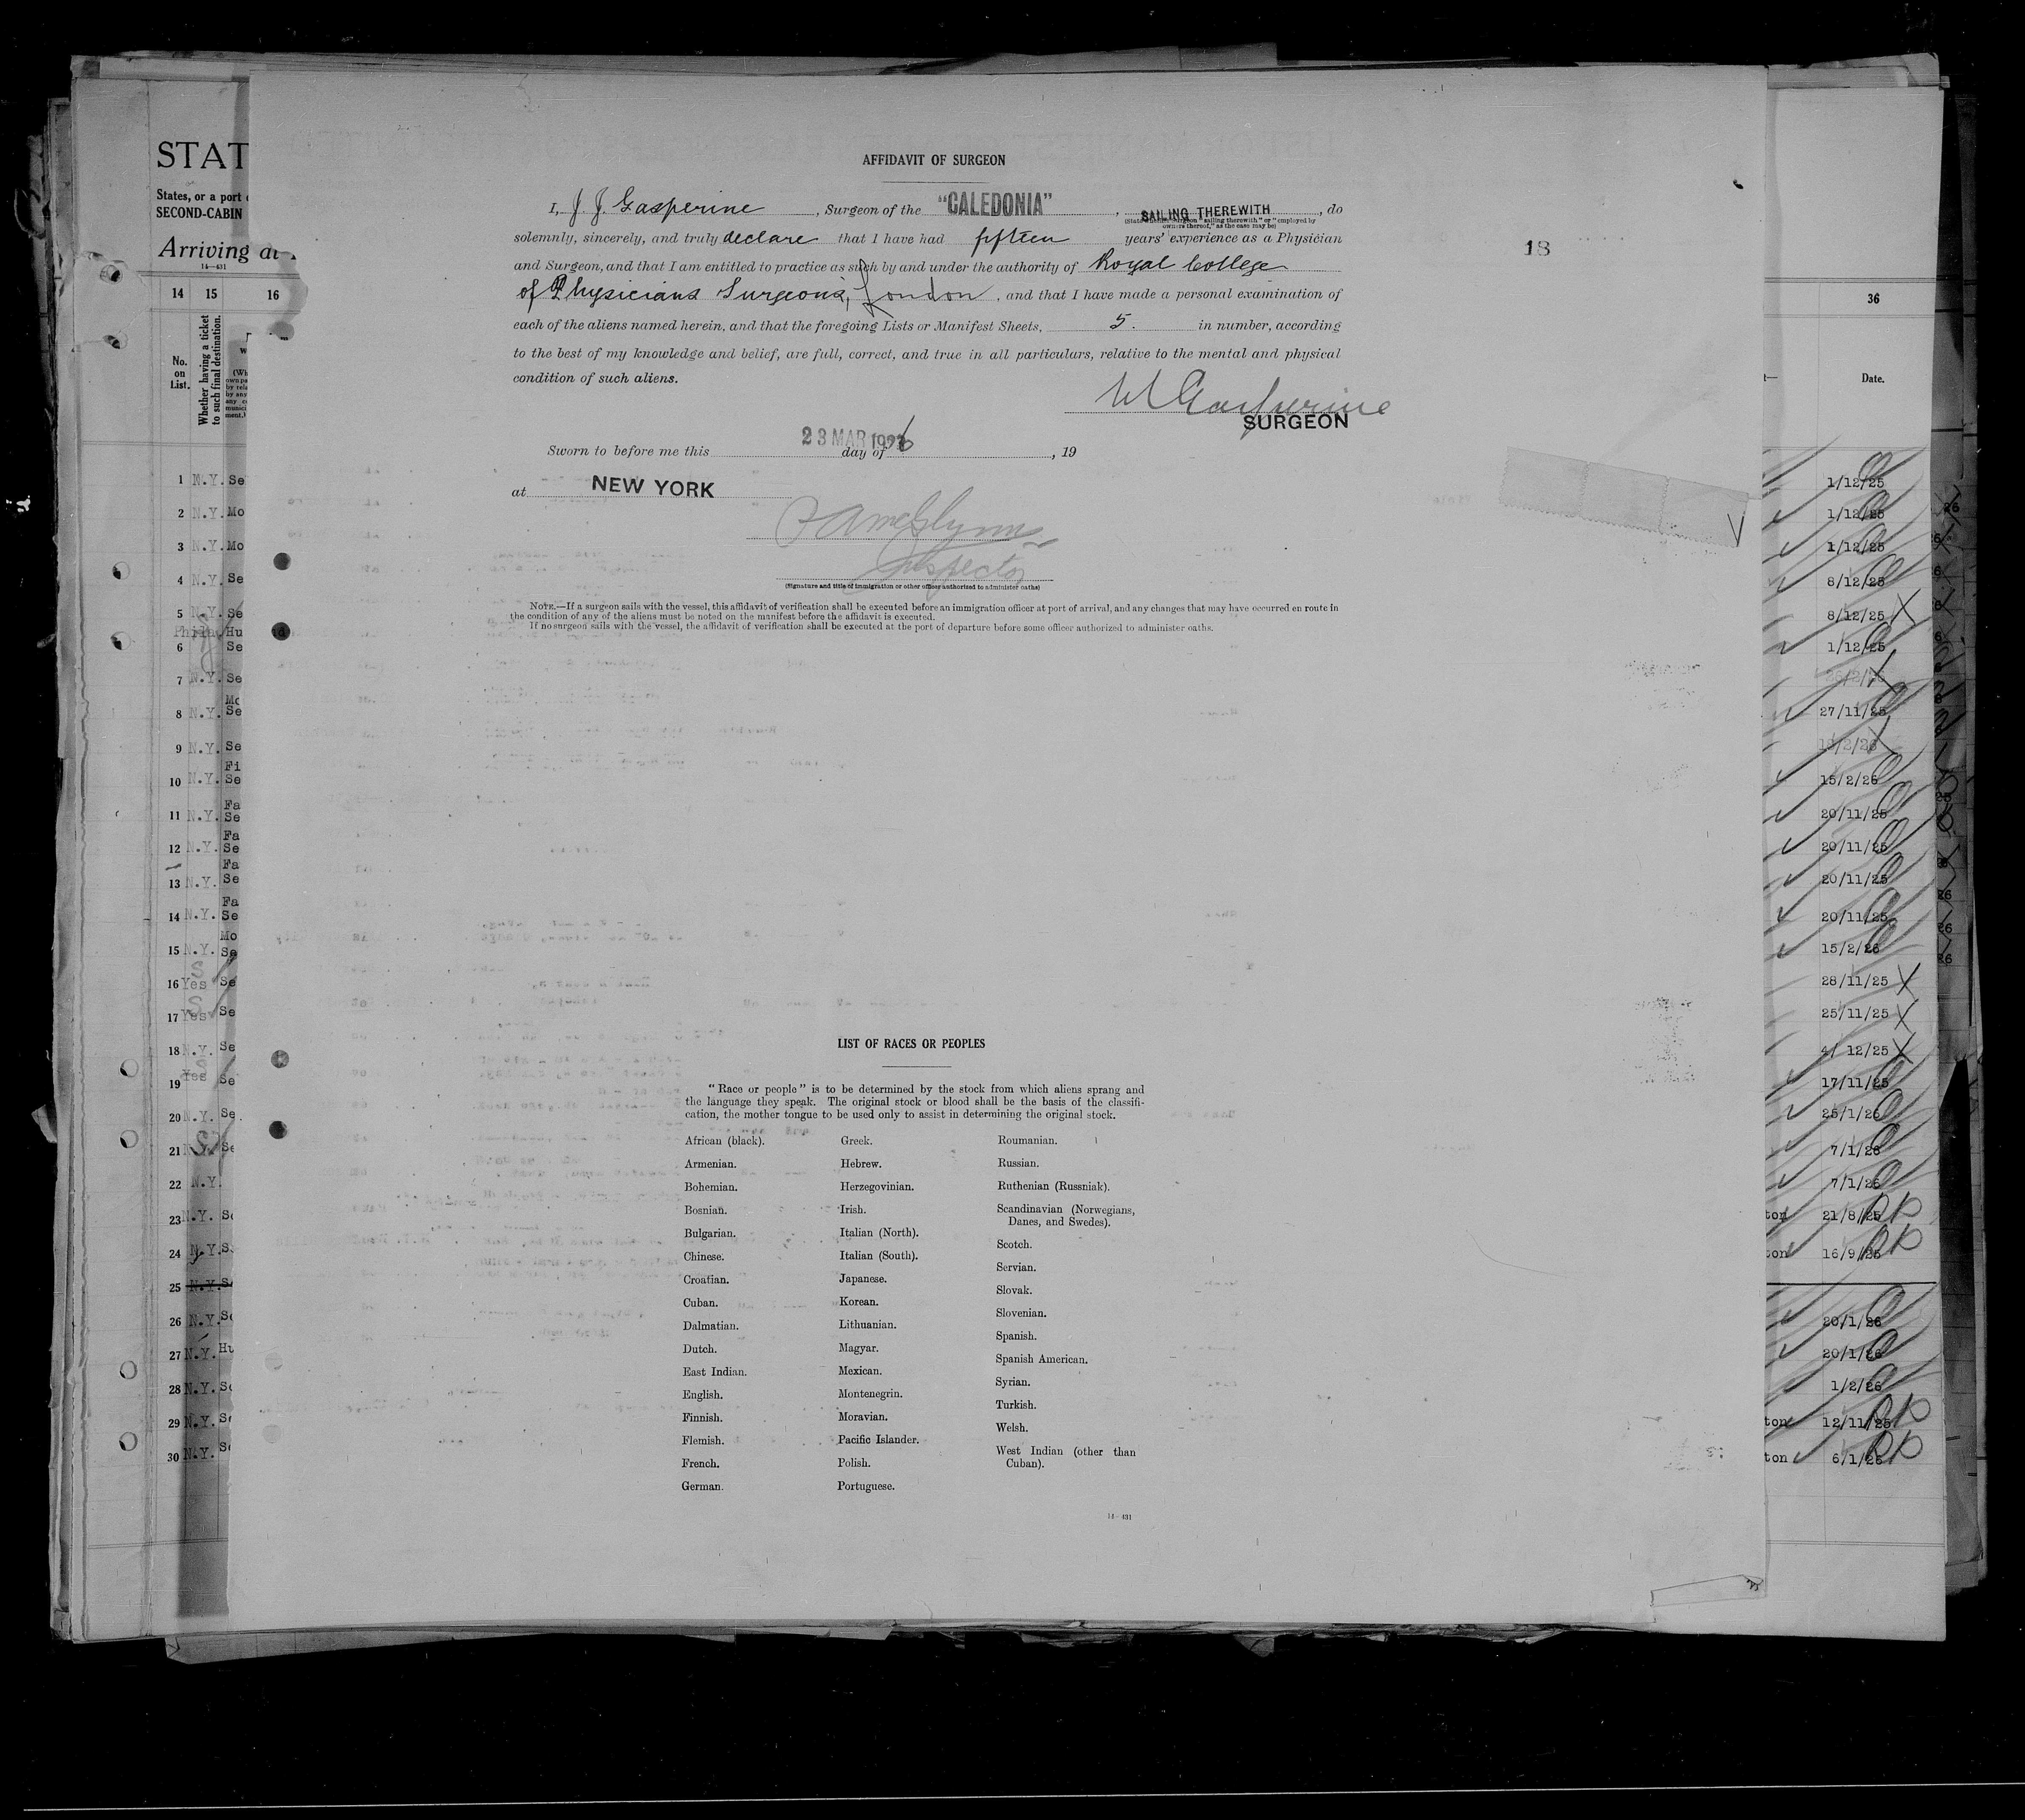 AFFIDAVIT OF SURGEON
I, J. J. Gasperine, Surgeon of the "CALEDONIA", SAILING THEREWITH, do
(State whether surgeon "sailing therewith" or "employed by
owners thereof," as the case may be)
solemnly, sincerely, and truly declare that I have had fifteen years' experience as a Physician
and Surgeon, and that I am entitled to practice as such by and under the authority of Royal College
of Physicians Surgeons, London, and that I have made a personal examination of
each of the aliens named herein, and that the foregoing Lists or Manifest Sheets, 5. in number, according
to the best of my knowledge and belief, are full, correct, and true in all particulars, relative to the mental and physical
condition of such aliens.
Gasperine
SURGEON
23 MAR 1926
Sworn to before me this day of , 19
at NEW YORK
Inspector
(Signature and title of immigration or other officer authorized to administer oaths)
NOTE.—If a surgeon sails with the vessel, this affidavit of verification shall be executed before an immigration officer at port of arrival, and any changes that may have occurred en route in
the condition of any of the aliens must be noted on the manifest before the affidavit is executed.
If no surgeon sails with the vessel, the affidavit of verification shall be executed at the port of departure before some officer authorized to administer oaths.
18
LIST OF RACES OR PEOPLES
"Race or people" is to be determined by the stock from which aliens sprang and
the language they speak. The original stock or blood shall be the basis of the classifi-
cation, the mother tongue to be used only to assist in determining the original stock.
African (black).
Armenian.
Bohemian.
Bosnian.
Bulgarian.
Chinese.
Croatian.
Cuban.
Dalmatian.
Dutch.
East Indian.
English.
Finnish.
Flemish.
French.
German.
Greek.
Hebrew.
Herzegovinian.
Irish.
Italian (North).
Italian (South).
Japanese.
Korean.
Lithuanian.
Magyar.
Mexican.
Montenegrin.
Moravian.
Pacific Islander.
Polish.
Portuguese.
Roumanian.
Russian.
Ruthenian (Russniak).
Scandinavian (Norwegians,
Danes, and Swedes).
Scotch.
Servian.
Slovak.
Slovenian.
Spanish.
Spanish American.
Syrian.
Turkish.
Welsh.
West Indian (other than
Cuban).
14-431
STAT
States, or a port
SECOND-CABIN
Arriving at
14-431
14 15 16
No.
on
List.
Whether having a ticket
to such final destination.
1 N.Y. Se
2 N.Y. Mo
3 N.Y. Mo
4 N.Y. Se
5 N.Y. Se
Phila Hu
6 Se
7 N.Y. Se
Mo
8 N.Y. Se
9 N.Y. Se
Fi
10 N.Y. Se
Fa
11 N.Y. Se
Fa
12 N.Y. Se
Fa
13 N.Y. Se
Fa
14 N.Y. Se
Mo
15 N.Y. Se
16 Yes Se
17 Yes Se
18 N.Y. Se
19 Yes Se
20 N.Y. Se
21 N.Y. Se
22 N.Y.
23 N.Y.
24 N.Y.
25 N.Y.
26 N.Y.
27 N.Y. Hu
28 N.Y.
29 N.Y.
30 N.Y.
36
Date.
1/12/25
1/12/25
1/12/25
8/12/25
8/12/25
1/12/25
27/11/25
15/2/26
20/11/25
20/11/25
20/11/25
20/11/25
15/2/26
28/11/25
25/11/25
4/12/25
17/11/25
25/1/26
7/1/26
7/1/26
ton 21/8/25
ton 16/9/25
20/1/26
20/1/26
1/2/26
ton 12/11/25
ton 6/1/26